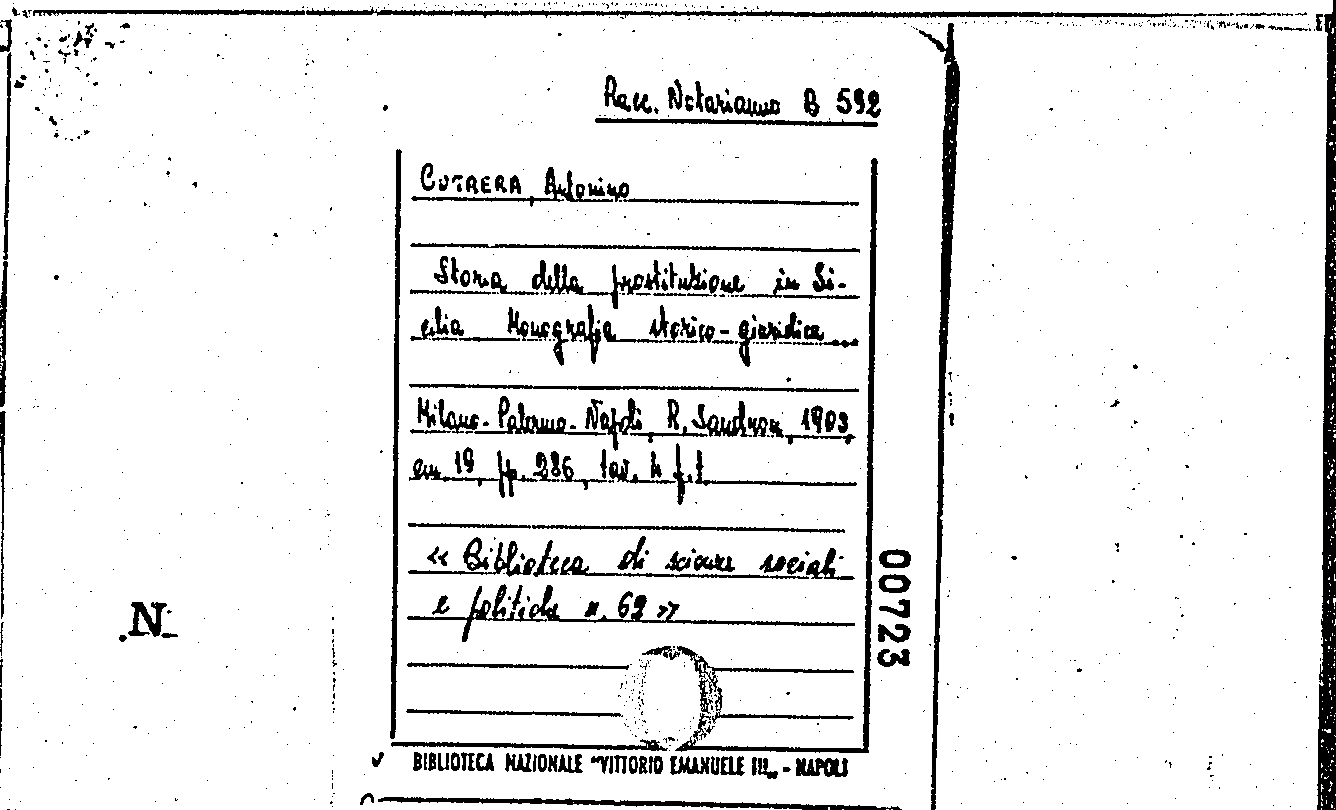 Racc. Notarianno B 592
CUTRERA, Antonino
Storia della prostituzione in Si-
cilia Monografia storico-giuridica ...
Milano-Palermo-Napoli, R. Sandron, 1903,
em. 19, pp. 286, tav. 4 f.t.
« Biblioteca di scienze sociali
e politiche n. 62 »
00723
N
BIBLIOTECA NAZIONALE "VITTORIO EMANUELE III„ - NAPOLI